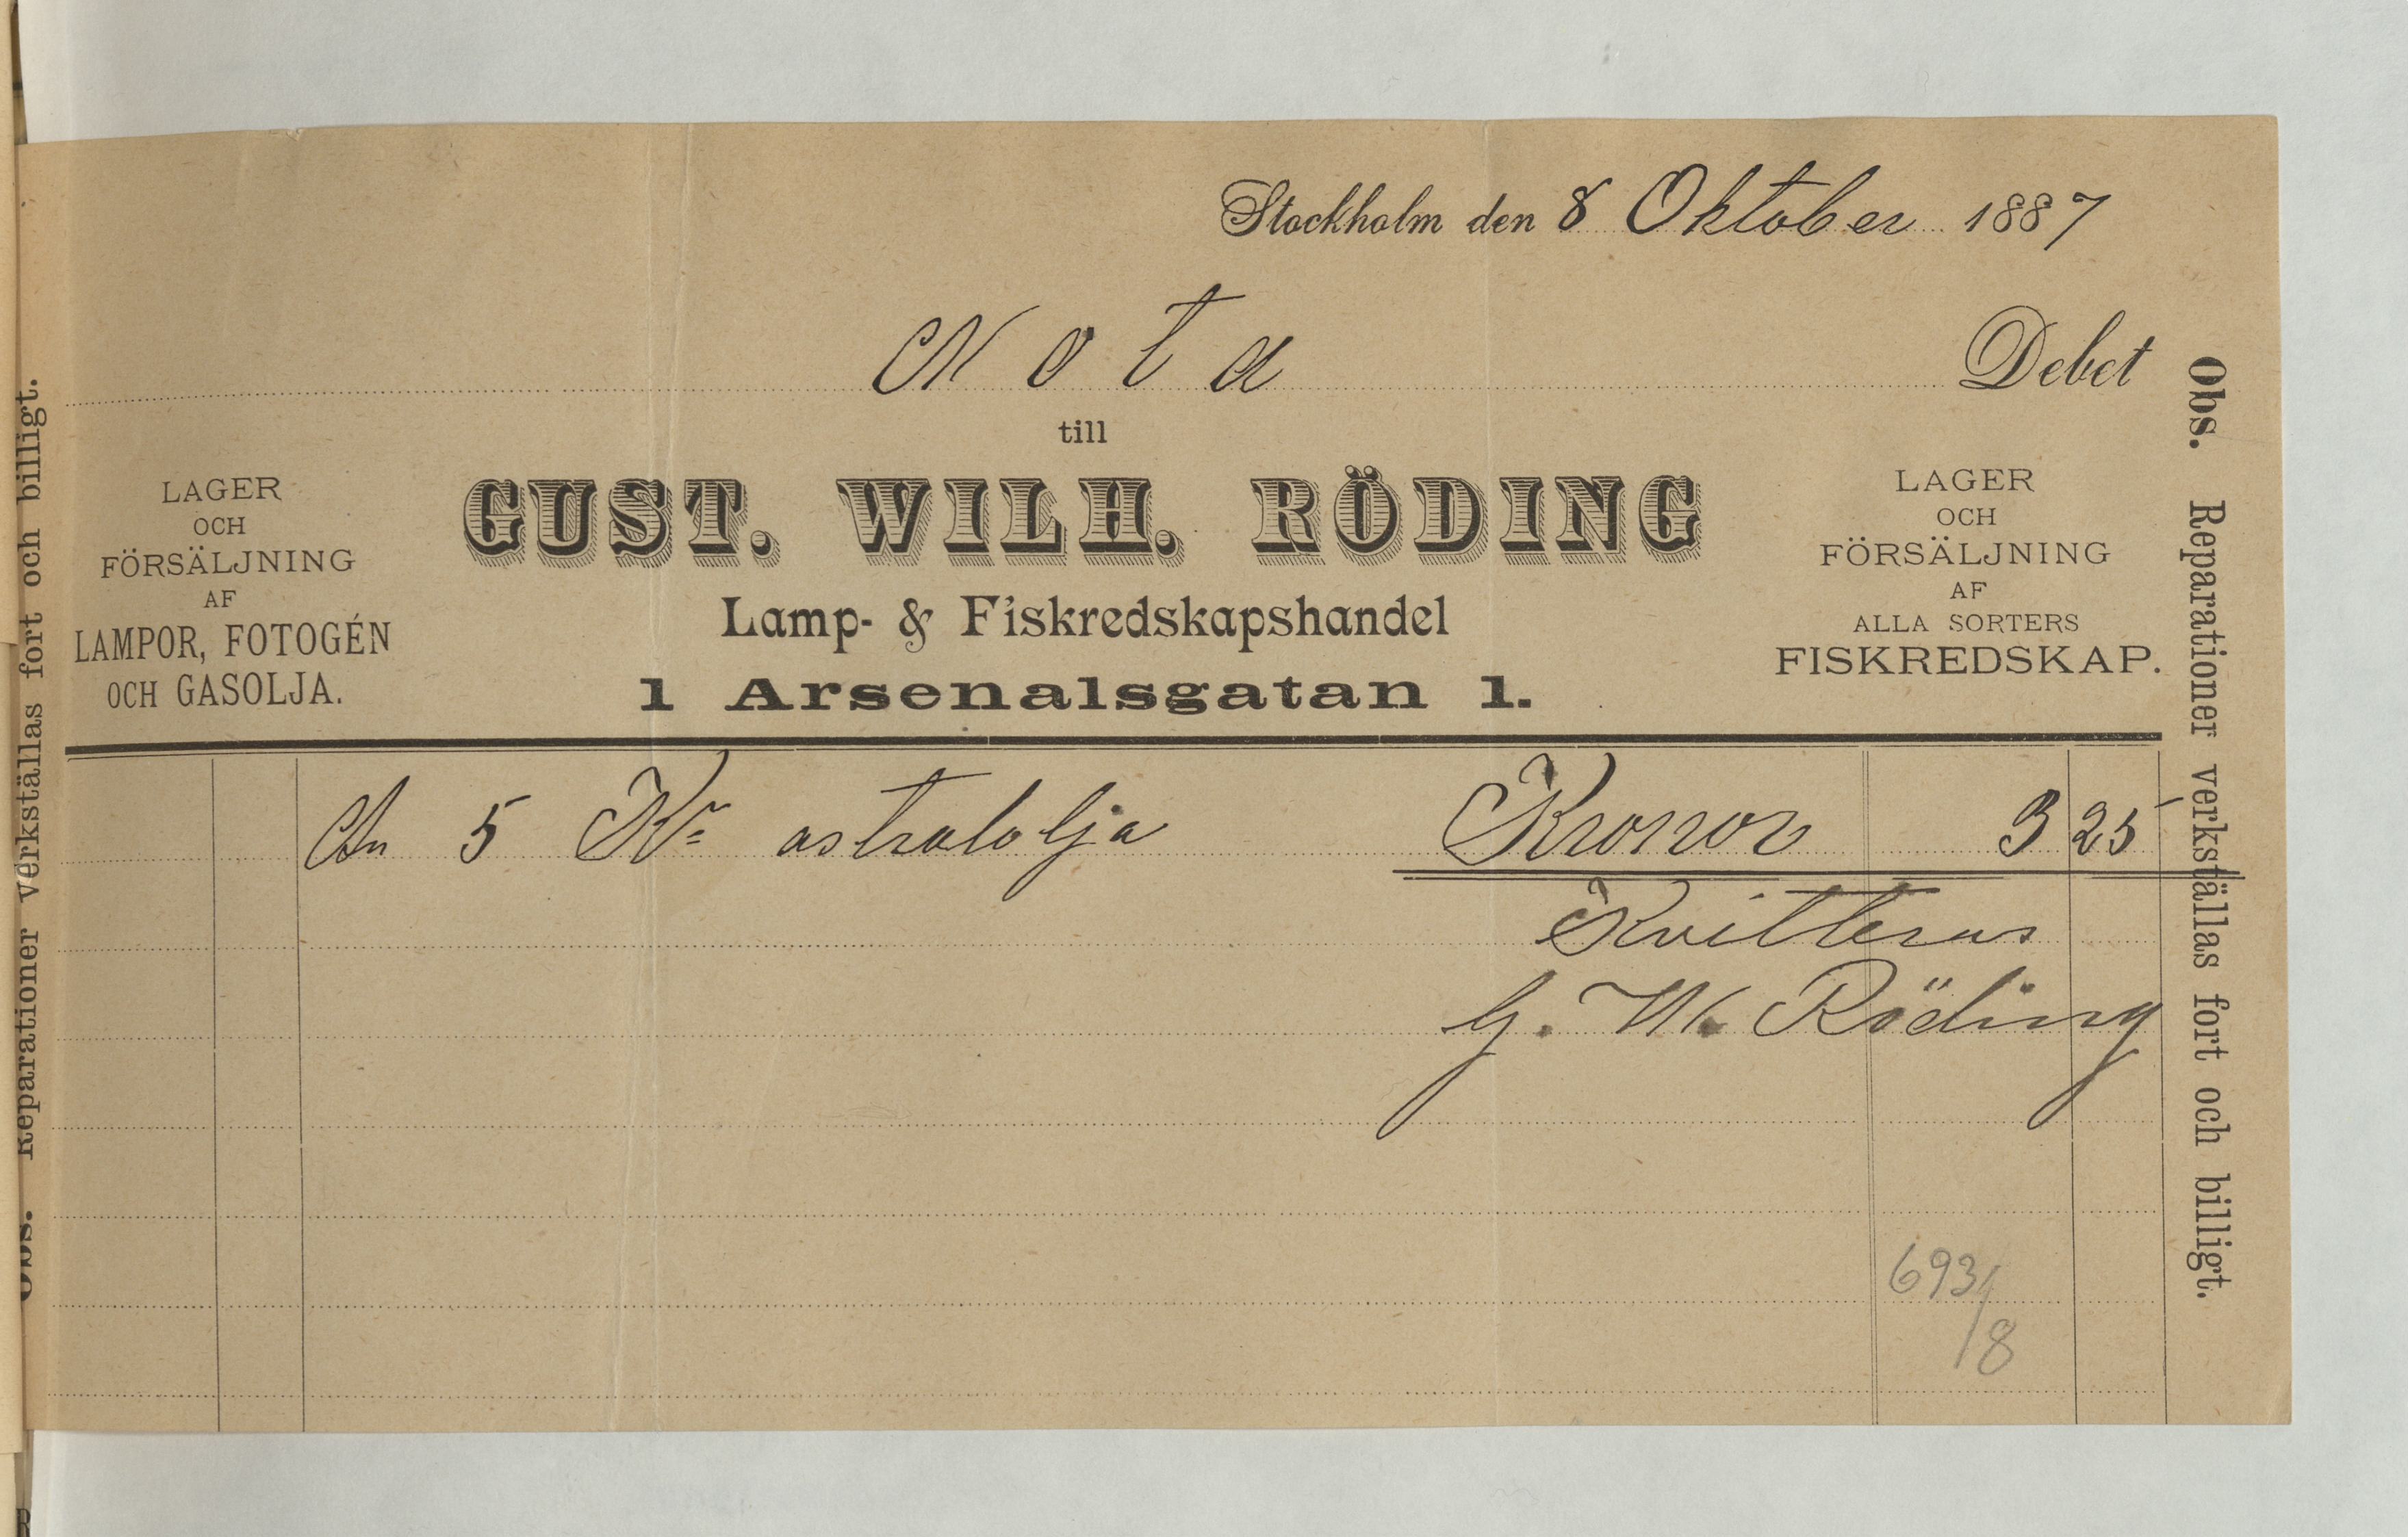 Stockholm den 8 Oktober 1887
Nota Debet
till
GUST. WILH. RÖDING
Lamp- & Fiskredskapshandel
1 Arsenalsgatan 1.
LAGER
OCH
FÖRSÄLJNING
AF
LAMPOR, FOTOGÉN
OCH GASOLJA.
LAGER
OCH
FÖRSÄLJNING
AF
ALLA SORTERS
FISKREDSKAP.
An 5 Kr astralolja Kronor 3 25
Kvitteras
G. W. Röding
693/8
Obs. Reparationer verkställas fort och billigt.
Obs. Reparationer verkställas fort och billigt.